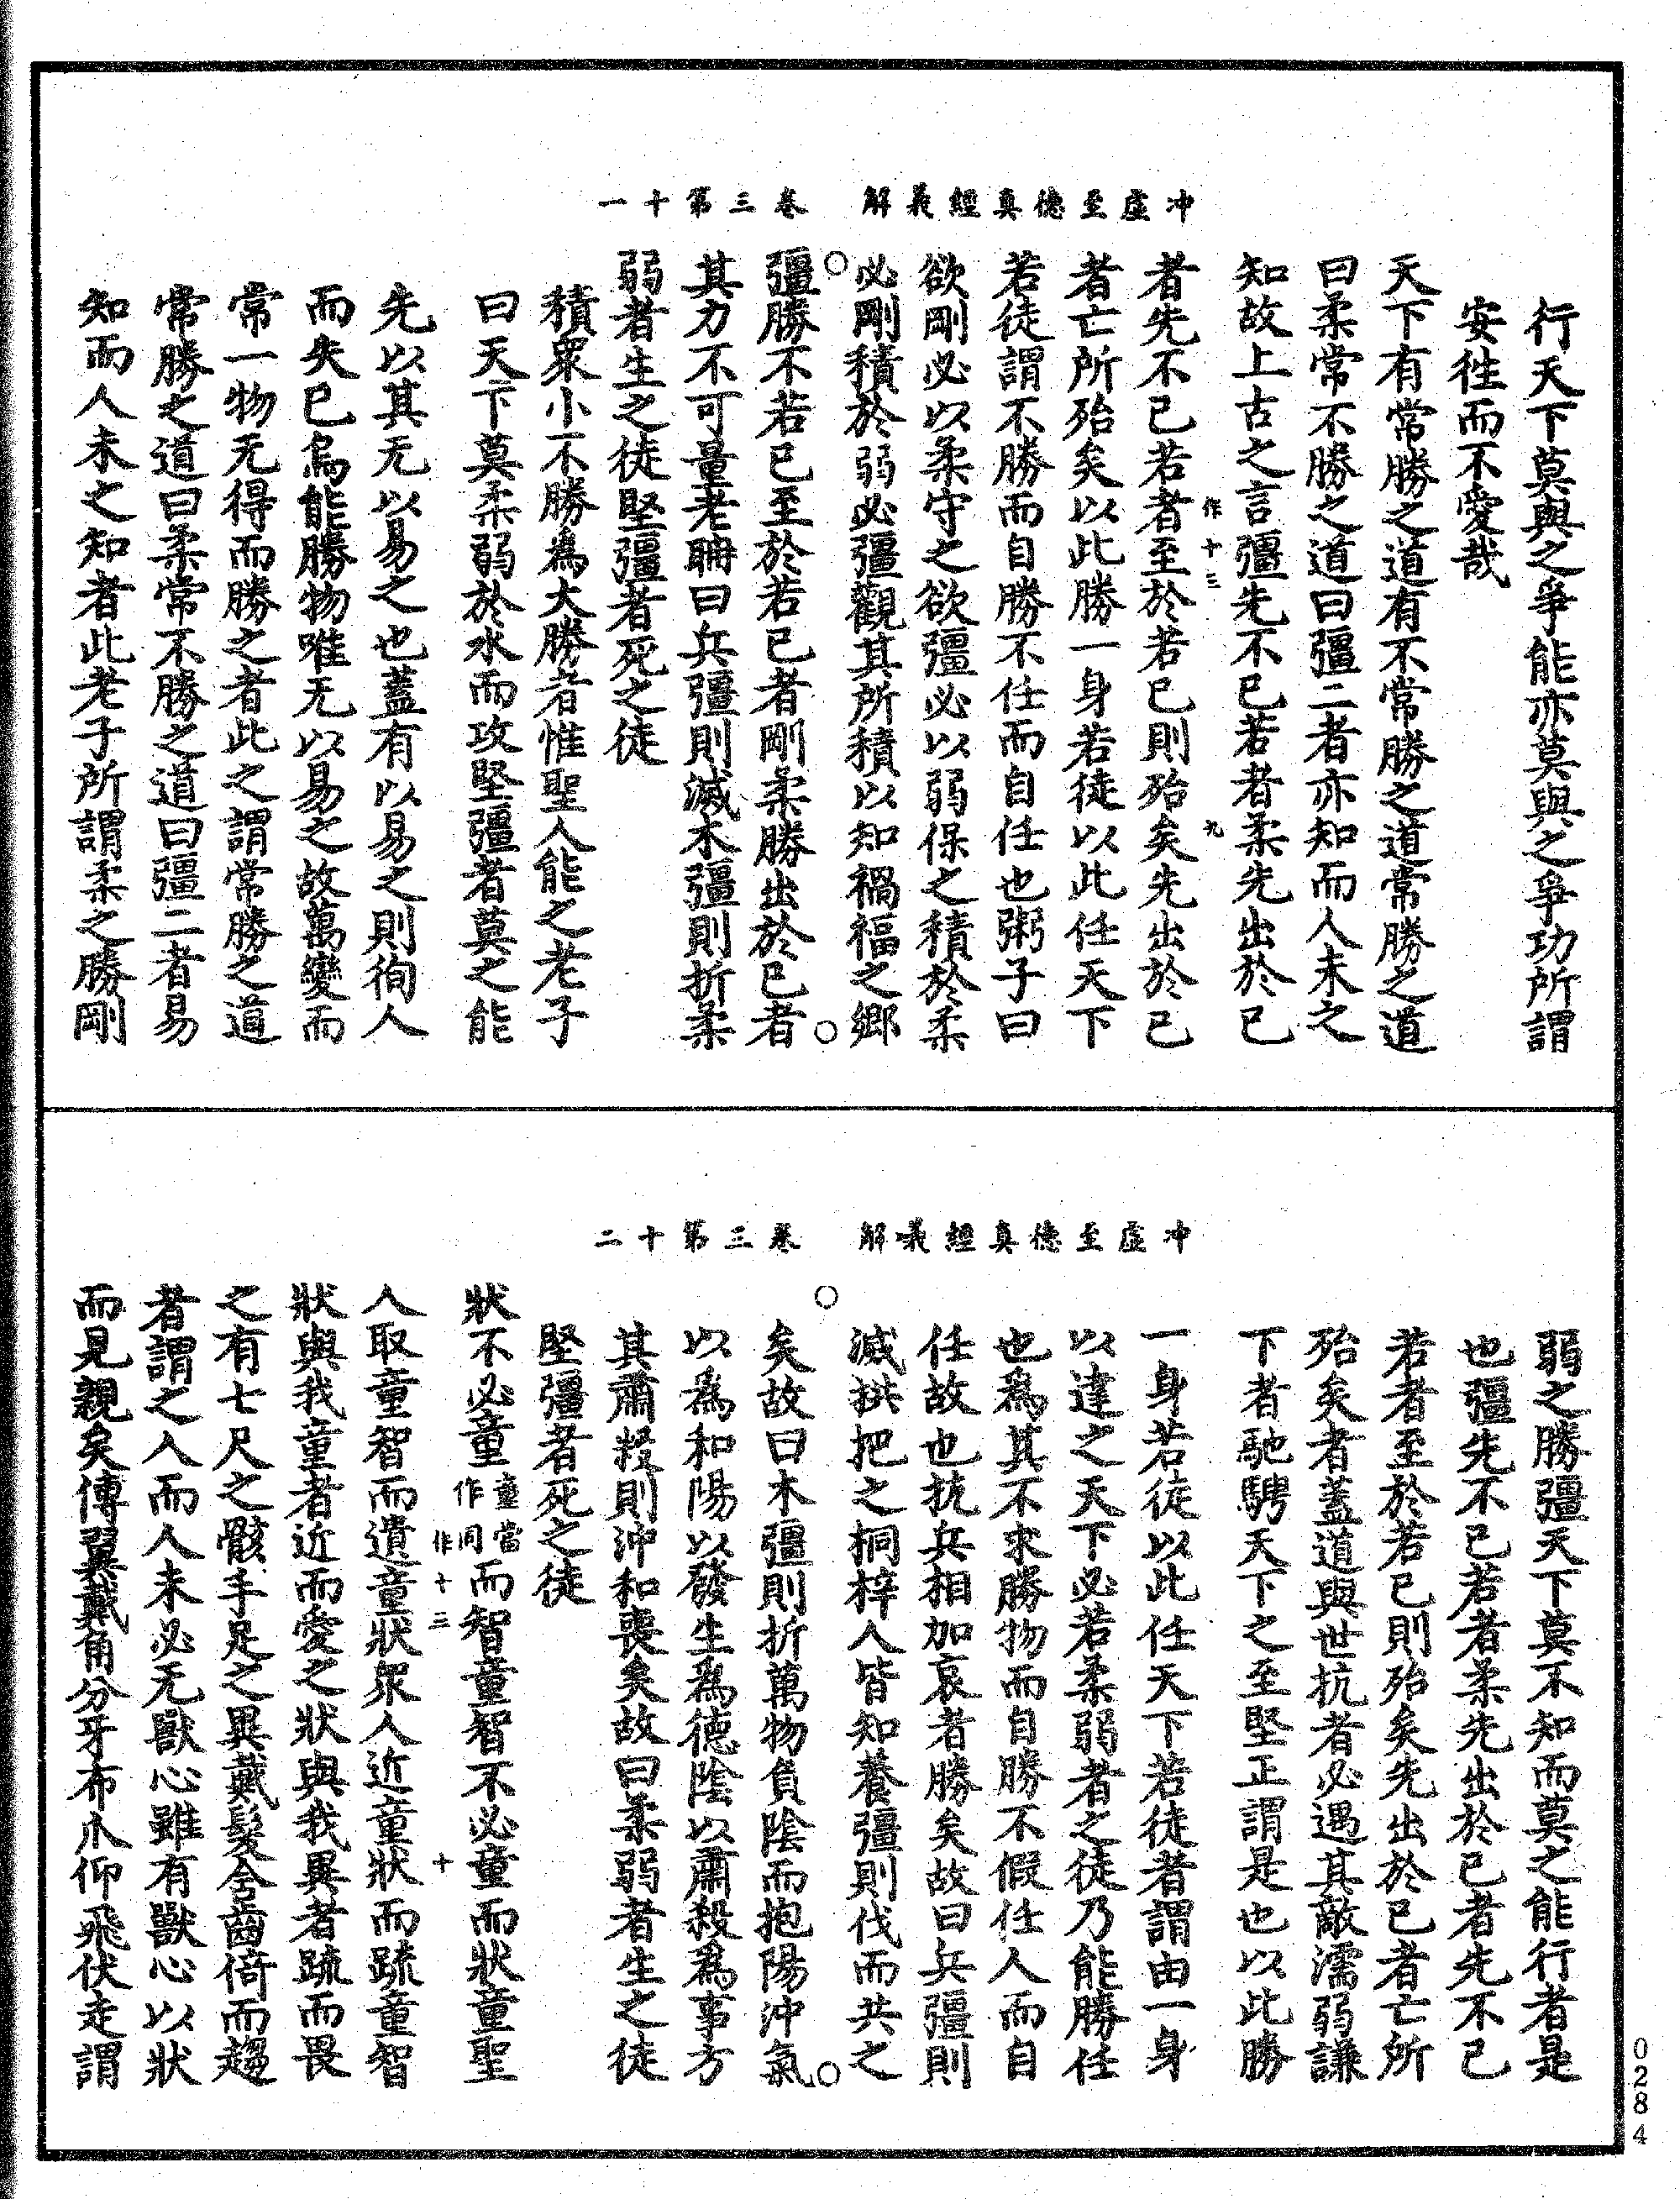 行天下莫與之爭能亦莫與之爭功所謂
安徃而不愛哉
天下有常勝之道有不常勝之道常勝之道
曰柔常不勝之道曰彊二者亦知而人未之
知故上古之言彊先不已若者柔先出於已
作十三
九
者先不已若者至於若已則殆矣先出於已
者亡所殆矣以此勝一身若徒以此任天下
若徒謂不勝而自勝不任而自任也粥子曰
欲剛必以柔守之欲彊必以弱保之積於柔
必剛積於弱必彊觀其所積以知禍福之鄉
沖虛至德真經義解　卷三第十一
彊勝不若已至於若已者剛柔勝出於已者
其力不可量老聃曰兵彊則滅木彊則折柔
弱者生之徒堅彊者死之徒
積衆小不勝為大勝者惟聖人能之老子
曰天下莫柔弱於水而攻堅彊者莫之能
先以其无以易之也蓋有以易之則徇人
而失已烏能勝物唯无以易之故萬變而
常一物无得而勝之者此之謂常勝之道
常勝之道曰柔常不勝之道曰彊二者易
知而人未之知者此老子所謂柔之勝剛
弱之勝彊天下莫不知而莫之能行者是
也彊先不已若者柔先出於已者先不已
若者至於若已則殆矣先出於已者亡所
殆矣者蓋道與世抗者必遇其敵濡弱謙
下者馳騁天下之至堅正謂是也以此勝
一身若徒以此任天下若徒者謂由一身
以達之天下必若柔弱者之徒乃能勝任
也為其不求勝物而自勝不假任人而自
任故也抗兵相加哀者勝矣故曰兵彊則
滅拱把之桐梓人皆知養彊則伐而共之
沖虛至德真經義解　卷三第十二
矣故曰木彊則折萬物負陰而抱陽沖氣
以為和陽以發生為德陰以肅殺為事方
其肅殺則沖和喪矣故曰柔弱者生之徒
堅彊者死之徒
狀不必童童當作同而智童智不必童而狀童聖
作十三
十
人取童智而遺童狀衆人近童狀而疏童智
狀與我童者近而愛之狀與我異者疏而畏
之有七尺之骸手足之異戴髮含齒倚而趨
者謂之人而人未必无獸心雖有獸心以狀
而見親矣傅翼戴角分牙布爪仰飛伏走謂
0284